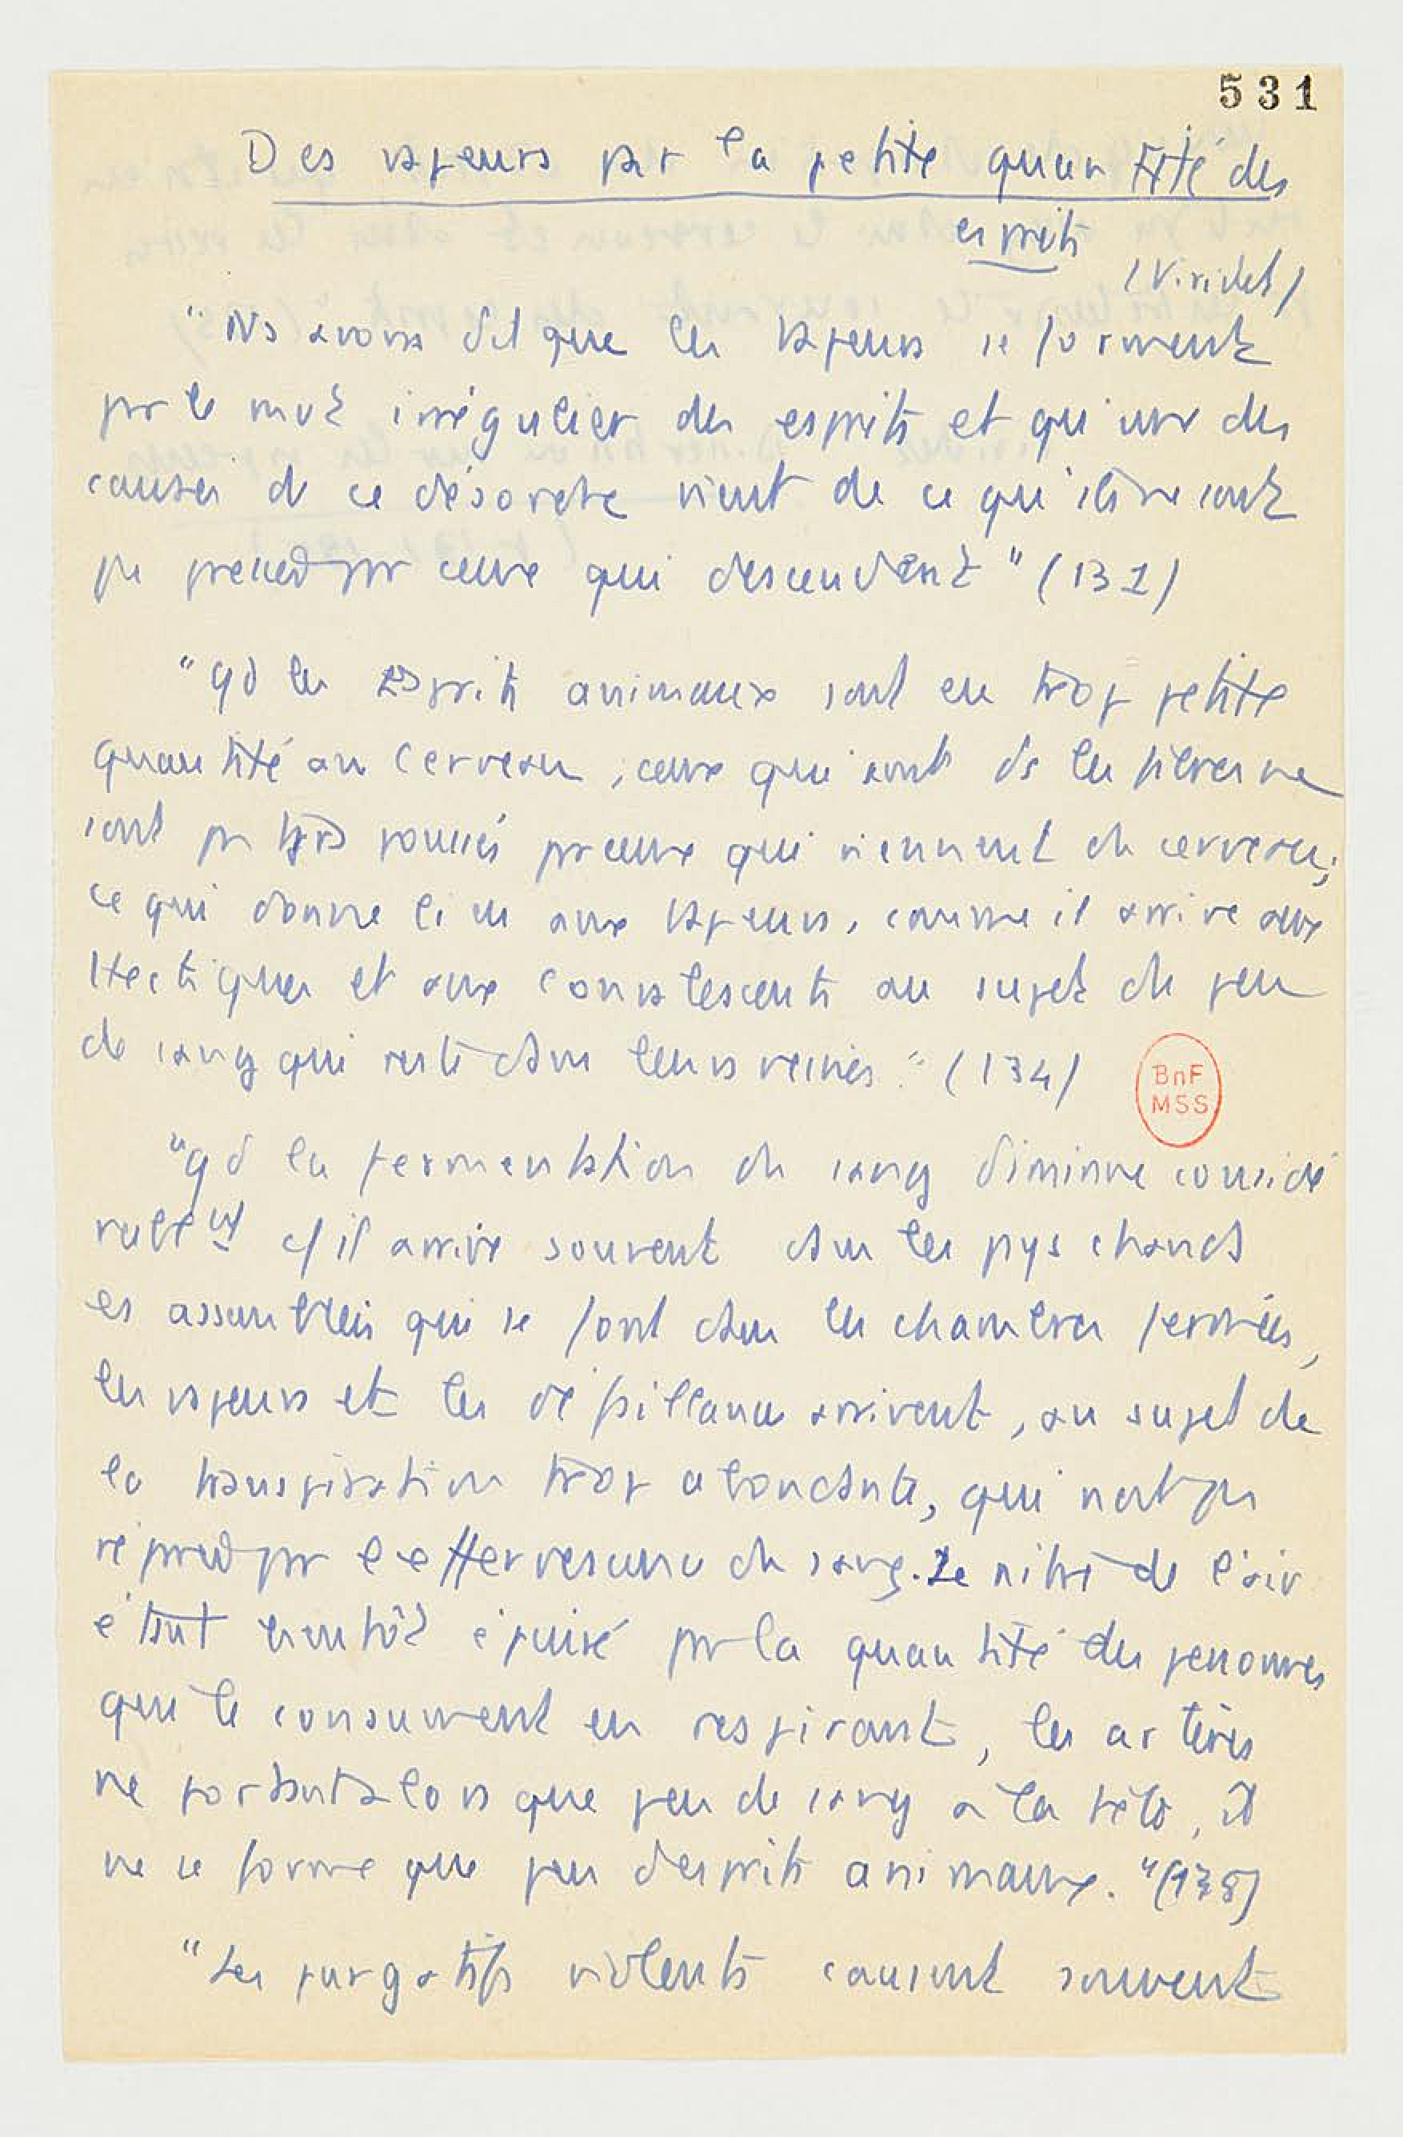 531
Des vapeurs par la petite quantité des
esprits
(Viridet)
"Ns avons dit que les vapeurs se forment
par le mvt irrégulier des esprits et qu'une des
causes de ce désordre vient de ce qu'ils ne sont
pas pressés par ceux qui descendent" (132)
"qd les Esprits animaux sont en trop petite
quantité au cerveau, ceux qui sont ds les fibres ne
sont pas poussés par ceux qui viennent du cerveau;
ce qui donne lieu aux vapeurs, comme il arrive aux
Hectiques et aux convalescents au sujet du peu
de sang qui reste dans leurs veines." (134)
"qd la fermentation du sang diminue considé
rablemt c/ il arrive souvent dans les pys chauds
es assemblées qui se font dans les chambres fermées,
les vapeurs et les défaillances arrivent, au sujet de
la transpiration trop abondante, qui n'est pas
réparée par l'effervescence du sang. Le nitre de l'air
étant bientôt épuisé par la quantité des personnes
qui le consument en respirant, les artères
ne portant alors que peu de sang à la tête, il
ne se forme que peu d'esprits animaux."
"Les purgatifs violents causent souvent
BnF
MSS